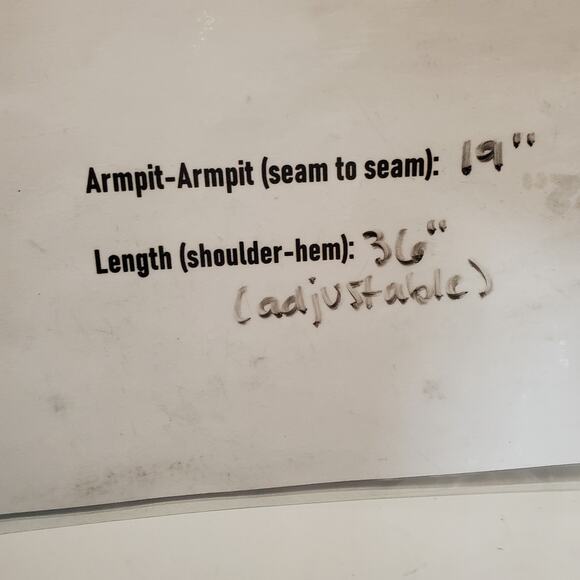 Armpit-Armpit (seam to seam): 19"
Length (shoulder-hem): 36"
(adjustable)